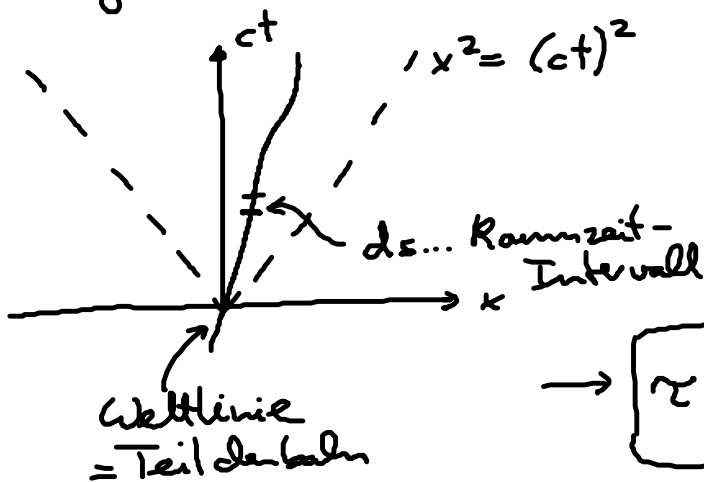 ct
x² = (ct)²
ds... Raumzeit-
Intervall
x
Weltlinie
= Teilchenbahn
→ τ